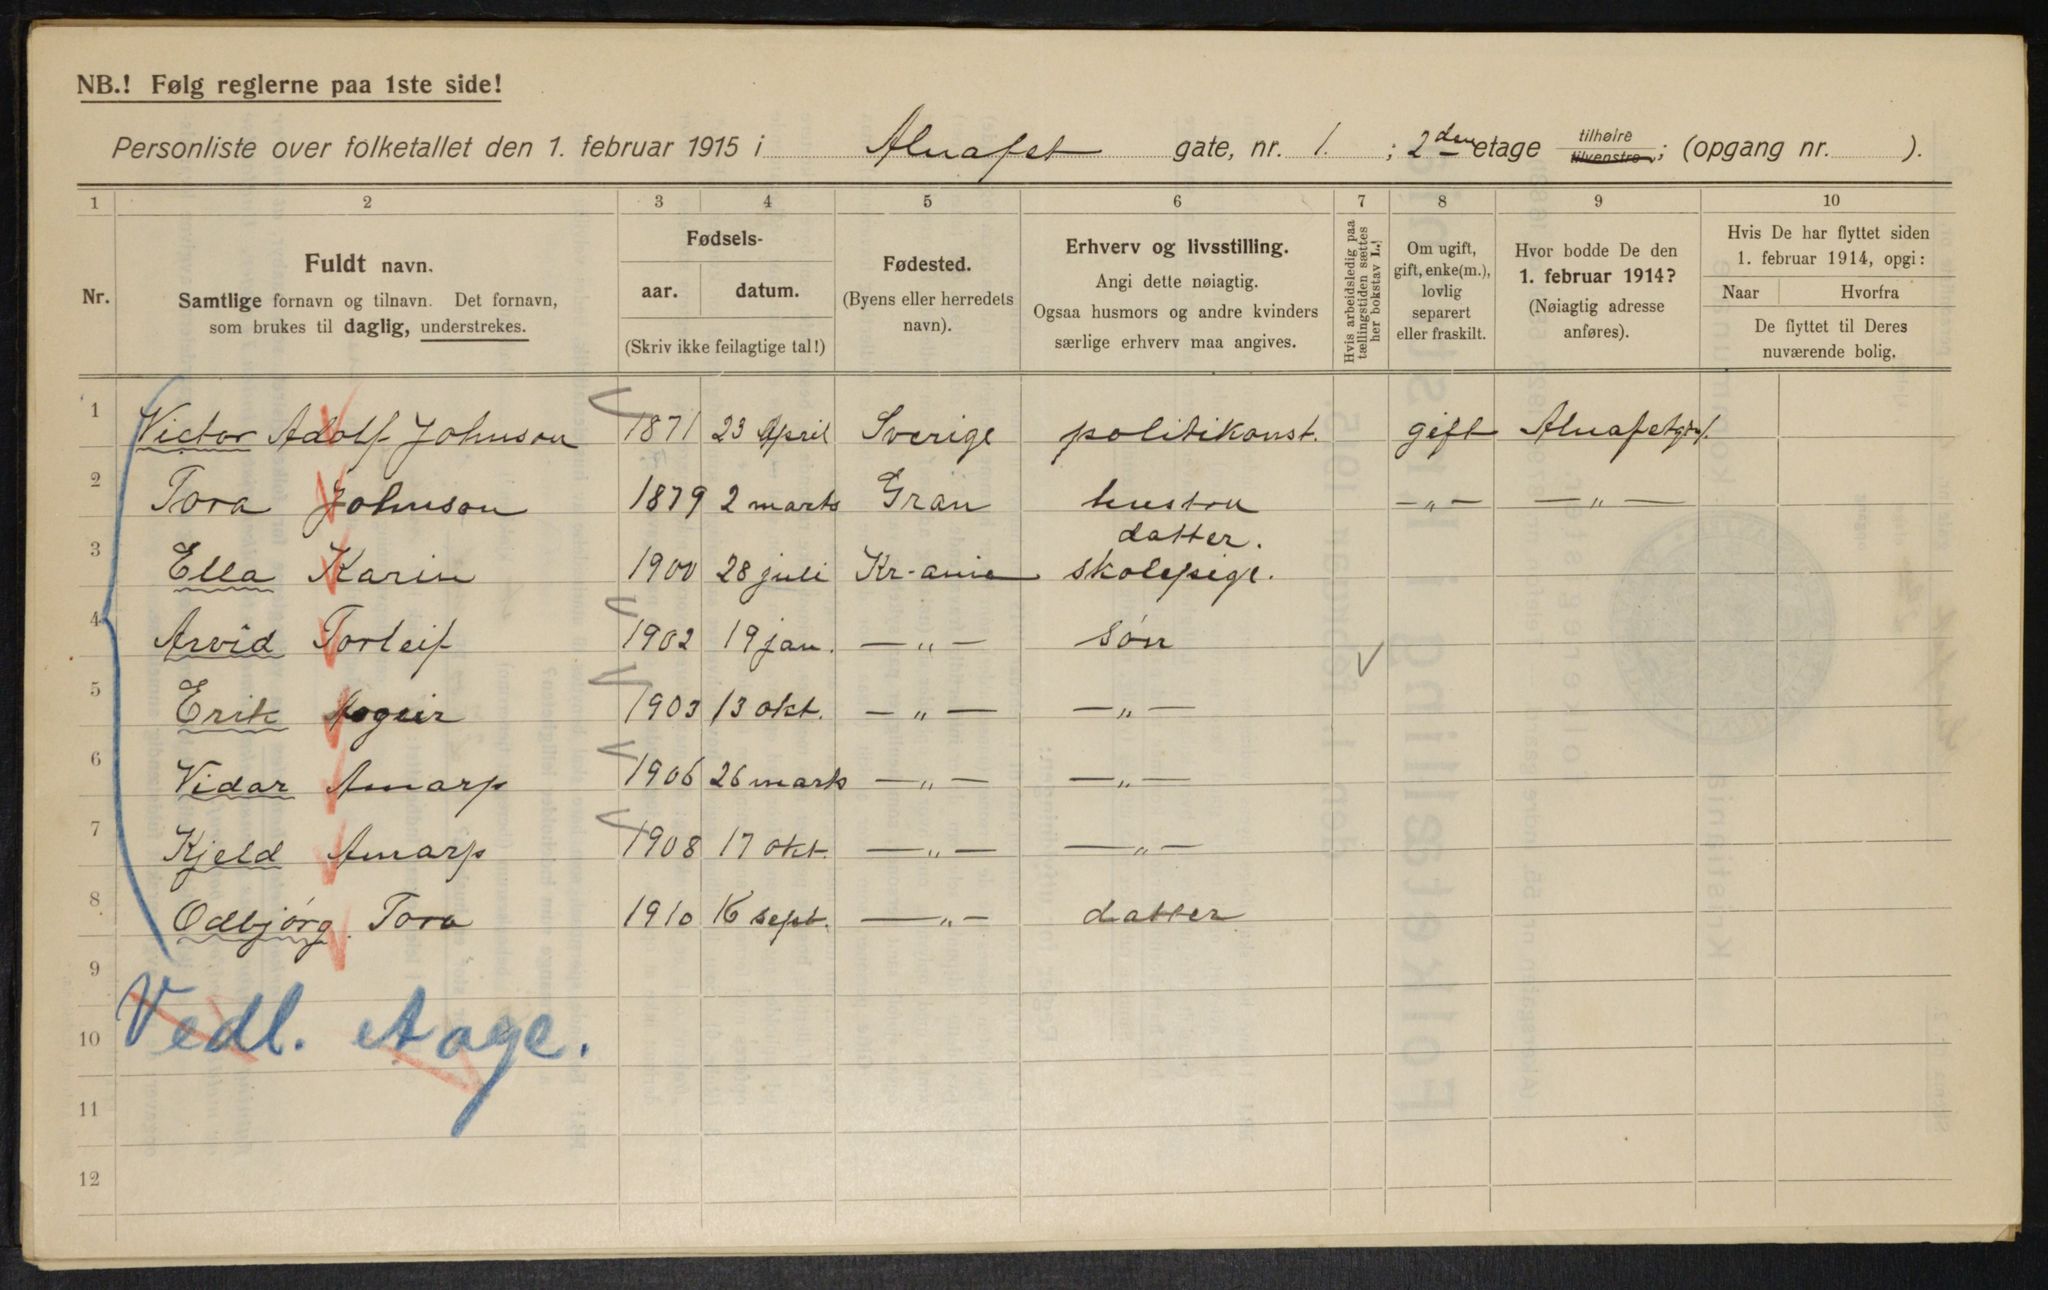 NB.! Følg reglerne paa 1ste side!
Personliste over folketallet den 1. februar 1915 i Alnafet gate, nr. 1. ; 2den etage tilhøire tilvenstre; (opgang nr. ).
1 2 3 4 5 6 7 8 9 10
Nr.
Fuldt navn.
Samtlige fornavn og tilnavn. Det fornavn,
som brukes til daglig, understrekes.
Fødsels-
aar. datum.
(Skriv ikke feilagtige tal!)
Fødested.
(Byens eller herredets
navn).
Erhverv og livsstilling.
Angi dette nøiagtig.
Ogsaa husmors og andre kvinders
særlige erhverv maa angives.
Hvis arbeidsledig paa
tællingstiden sættes
her bokstav L.!
Om ugift,
gift, enke(m.),
lovlig
separert
eller fraskilt.
Hvor bodde De den
1. februar 1914?
(Nøiagtig adresse
anføres).
Hvis De har flyttet siden
1. februar 1914, opgi:
Naar Hvorfra
De flyttet til Deres
nuværende bolig.
1 Victor Adolf Johnson 1871 23 April Sverige politikonst. gift Alnafetgt. 1.
2 Tora Johnson 1879 2 marts Gran hustru —„— —„—
3 Ella Karin 1900 28 juli Kr-ania datter. skolepige.
4 Arvid Torleif 1902 19 jan. —„— søn
5 Erik 1903 13 okt. —„— —„—
6 Vidar Amarp 1906 26 marts —„— —„—
7 Kjeld Amarp 1908 17 okt. —„— —„—
8 Odbjörg Tora 1910 16 sept. —„— datter
9
10 Vedl. Aage.
11
12